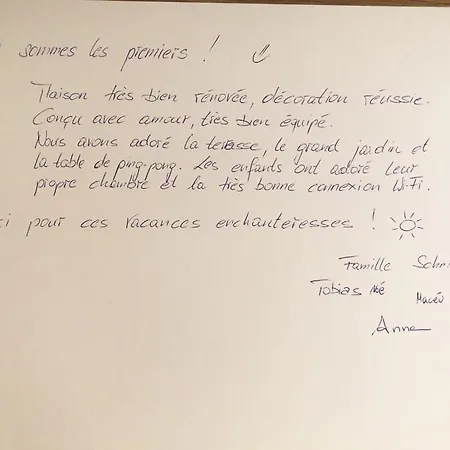 sommes les premiers !
Maison très bien rénovée, décoration réussie.
Conçu avec amour, très bien équipé.
Nous avons adoré la terasse, le grand jardin et
la table de ping-pong. Les enfants ont adoré leur
propre chambre et la très bonne connexion Wi-Fi.
ci pour ces vacances enchanteresses !
Famille Schri
Tobias
Anne